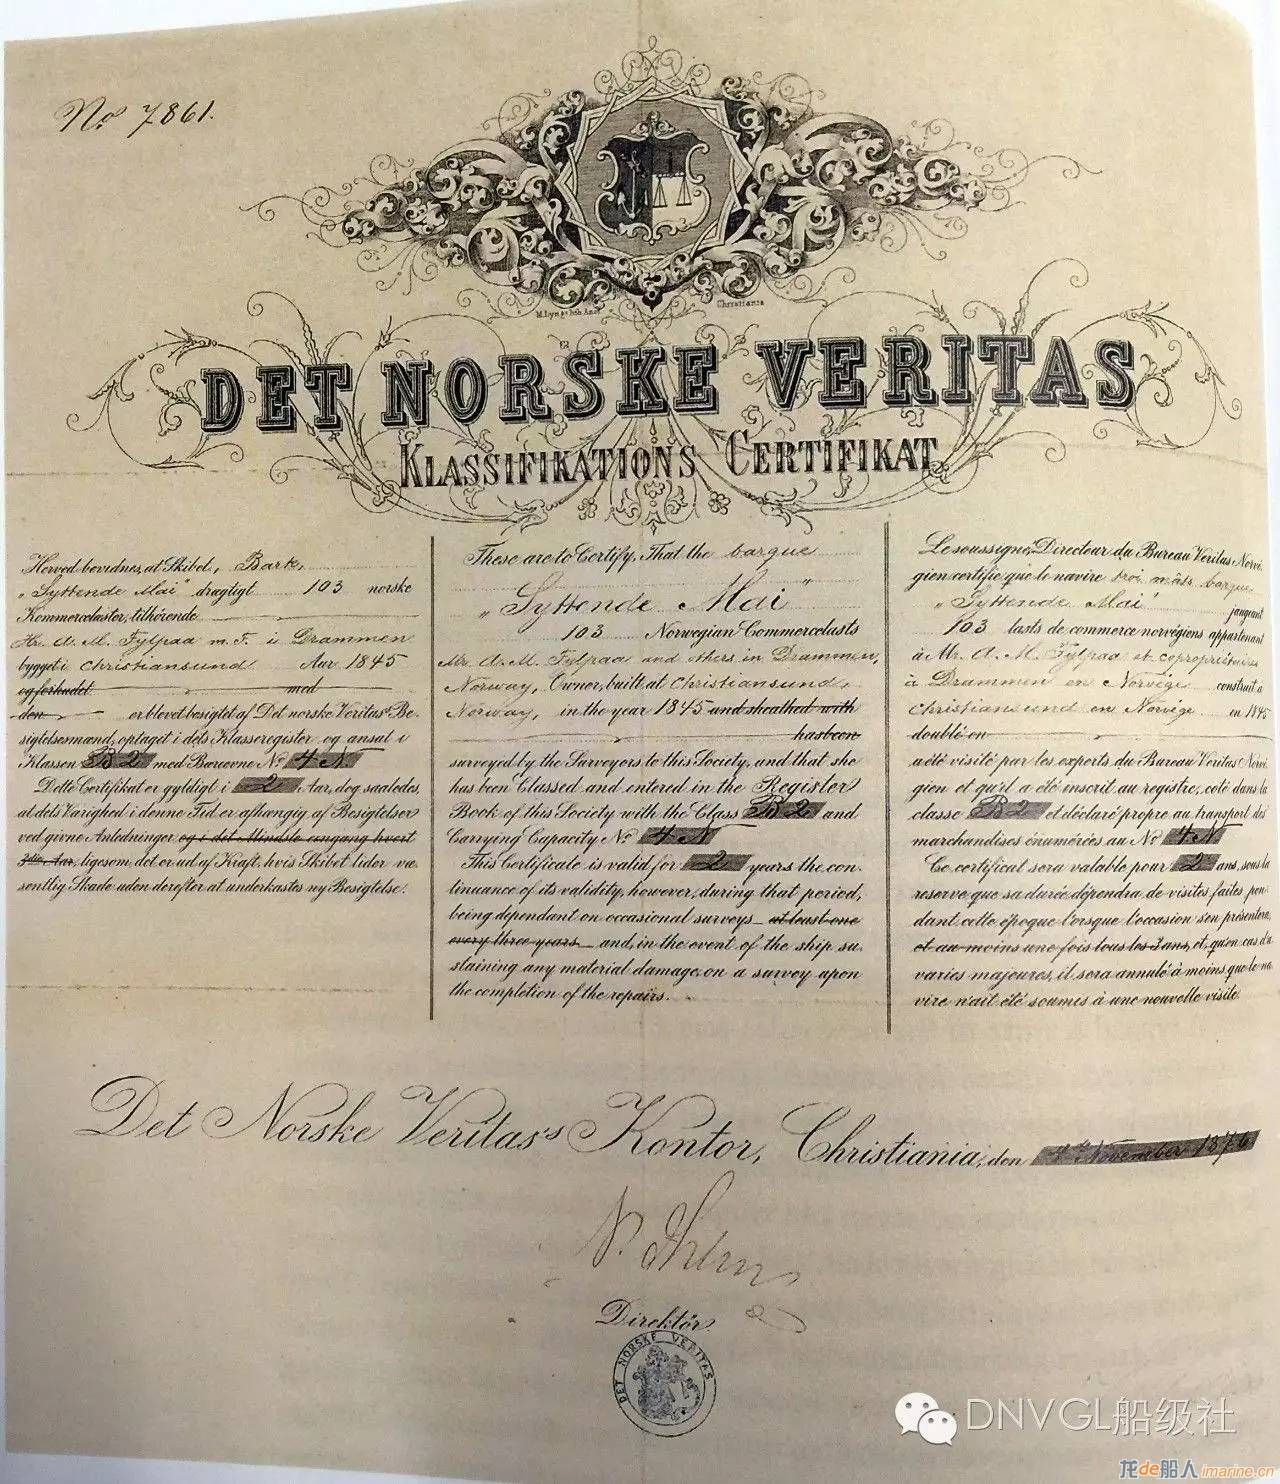 No 7861.
Christiania
DET NORSKE VERITAS
KLASSIFIKATIONS CERTIFIKAT
Herved bevidnes, at Skibet, Bark,
"Syttende Mai" drægtigt 103 norske
Kommercelæster, tilhörende
Hr. A. M. Fylpaa m. F. i Drammen
bygget i Christiansund Aar 1845
og forhudet med
den er blevet besigtet af Det norske Veritas' Be-
sigtelsesmænd, optaget i dets Klasseregister og ansat i
Klassen B 2 med Bæreevne No 4 N
Dette Certifikat er gyldigt i 2 Aar, dog saaledes,
at dets Varighed i denne Tid er afhængig af Besigtelser
ved givne Anledninger og i det Mindste engang hvert
3die Aar, ligesom det er ud af Kraft, hvis Skibet lider væ-
sentlig Skade uden derefter at underkastes ny Besigtelse.
These are to Certify, That the barque
"Syttende Mai"
103 Norwegian Commercelasts
Mr. A. M. Fylpaa and others in Drammen,
Norway, Owner, built at Christiansund,
Norway, in the year 1845 and sheathed with
has been
surveyed by the Surveyors to this Society, and that she
has been Classed and entered in the Register
Book of this Society with the Class B 2 and
Carrying Capacity No 4 N
This Certificate is valid for 2 years the con-
tinuance of its validity, however, during that period,
being dependant on occasional surveys at least one
every three years and, in the event of the ship su-
staining any material damage, on a survey upon
the completion of the repairs.
Le soussigné, Directeur du Bureau Veritas Norvé-
gien certifie que le navire troi mâts barque
"Syttende Mai" jaugeant
103 lasts de commerce norvégiens appartenant
à Mr. A. M. Fylpaa et copropriétaires
à Drammen en Norvége construit a
Christiansund en Norvége en 1845
doublé en
a été visité par les experts du Bureau Veritas Norvé-
gien et qu'il a été inscrit au registre, coté dans la
classe B 2 et déclaré propre au transport des
marchandises énumérées au No 4 N
Ce certificat sera valable pour 2 ans, sous la
reserve que sa durée dépendra de visites faites pen-
dant cette époque lorsque l'occasion s'en présentera,
et au moins une fois tous les 3 ans, et, qu'en cas d'a-
varies majeures, il sera annulé à moins que le na-
vire n'ait été soumis à une nouvelle visite
Det Norske Veritas's Kontor, Christiania, den 4 November 1876
Direktör.
DET NORSKE VERITAS
DNVGL船级社
龙de船人 imarine.cn